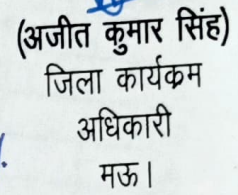 (अजीत कुमार सिंह)
जिला कार्यक्रम
अधिकारी
मऊ।